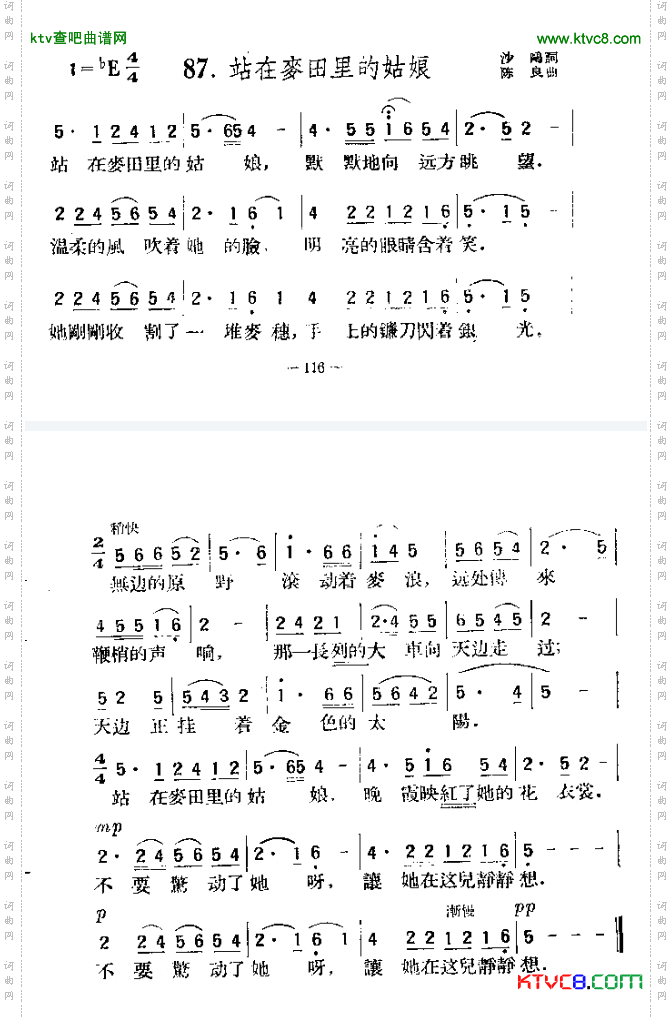 ktv查吧曲谱网
www.ktvc8.com
1=♭E 4/4
87. 站在麥田里的姑娘
沙 鷗詞
陈 良曲
5· 1 2 4 1 2 | 5· 65 4 - | 4· 5 5 1 6 5 4 | 2· 5 2 - |
站 在麥田里的 姑 娘, 默 默地向 远方眺 望.
2 2 4 5 6 5 4 | 2· 1 6 1 | 4 2 2 1 2 1 6 | 5· 1 5 - |
溫柔的風 吹着 她 的臉, 明 亮的眼睛含着 笑.
2 2 4 5 6 5 4 | 2· 1 6 1 4 | 2 2 1 2 1 6 | 5· 1 5 |
她剛剛收 割了 一 堆麥穗, 手 上的镰刀閃着 銀 光,
— 116 —
稍快
2/4 5 6 6 5 5 2 | 5· 6 | 1· 6 6 | 1 4 5 | 5 6 5 4 | 2· 5 |
無边的原 野 滾 动着 麥 浪, 远处傳 來
4 5 5 1 6 | 2 - | 2 4 2 1 | 2·4 5 5 | 6 5 4 5 | 2 - |
鞭梢的声 响, 那一長列的大 車向 天边走 过;
5 2 5 | 5 4 3 2 | 1· 6 6 | 5 6 4 2 | 5· 4 | 5 5 |
天边 正挂 着 金 色的 太 陽.
4/4 5· 1 2 4 1 2 | 5· 65 4 - | 4· 5 1 6 5 4 | 2· 5 2 - |
站 在麥田里的 姑 娘, 晚 霞映紅了她的 花 衣裳.
mp
2· 2 4 5 6 5 4 | 2· 1 6 - | 4· 2 2 1 2 1 6 | 5 - - - |
不 要 驚 动了 她 呀, 讓 她在这兒靜靜 想.
p
渐慢
pp
2 2 4 5 6 5 4 | 2· 1 6 1 | 4 2 2 1 2 1 6 | 5 - - - ‖
不 要 驚 动了 她 呀, 讓 她在这兒靜靜 想.
KTVC8.com
词曲网